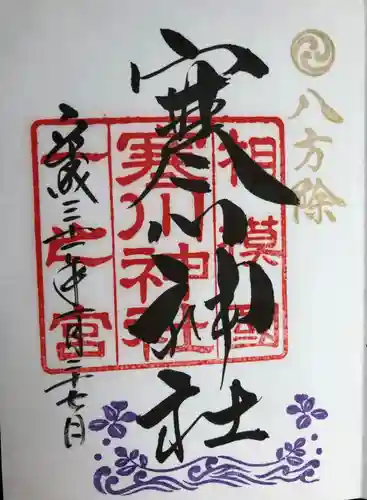 八方除
寒川神社
相模國
寒川神社
一之宮
平成三十一年一月二十七日